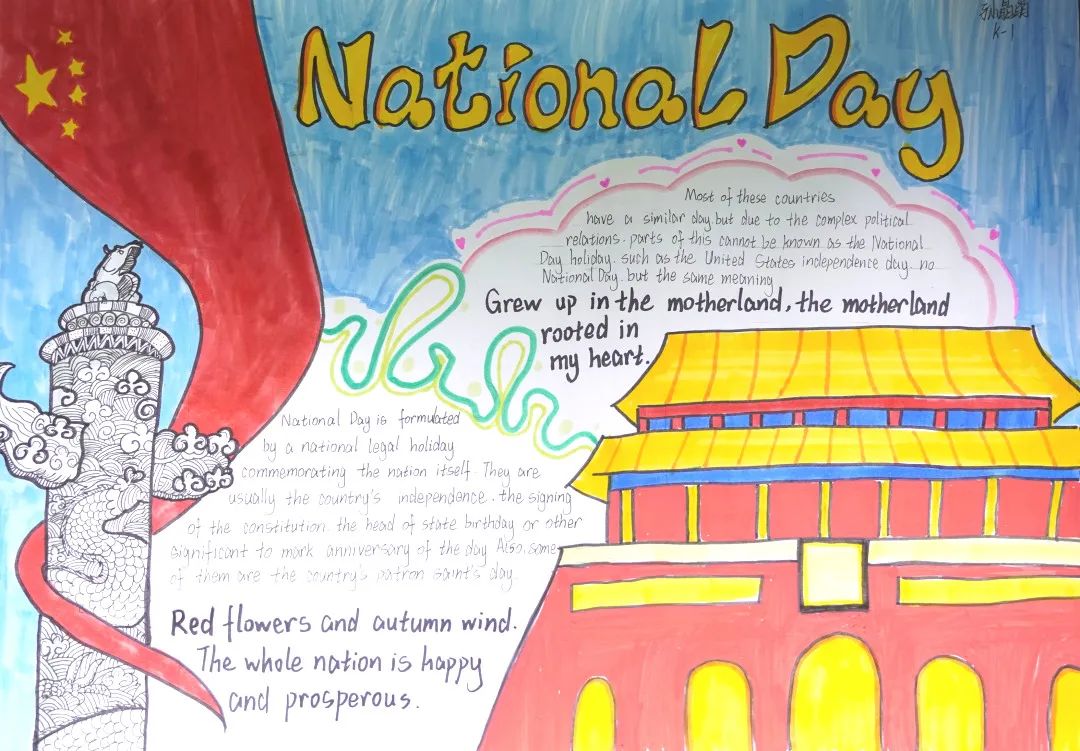 National Day
K-1
Most of these countries
have a similar day, but due to the complex political
relations. parts of this cannot be known as the National
Day holiday. such as the United States independence day no
National Day. but the same meaning
Grew up in the motherland, the motherland
rooted in
my heart.
National Day is formulated
by a national legal holiday
commemorating the nation itself. They are
usually the country's independence. the signing
of the constitution. the head of state birthday or other
significant to mark anniversary of the day. Also, some
of them are the country's patron saint's day
Red flowers and autumn wind.
The whole nation is happy
and prosperous.